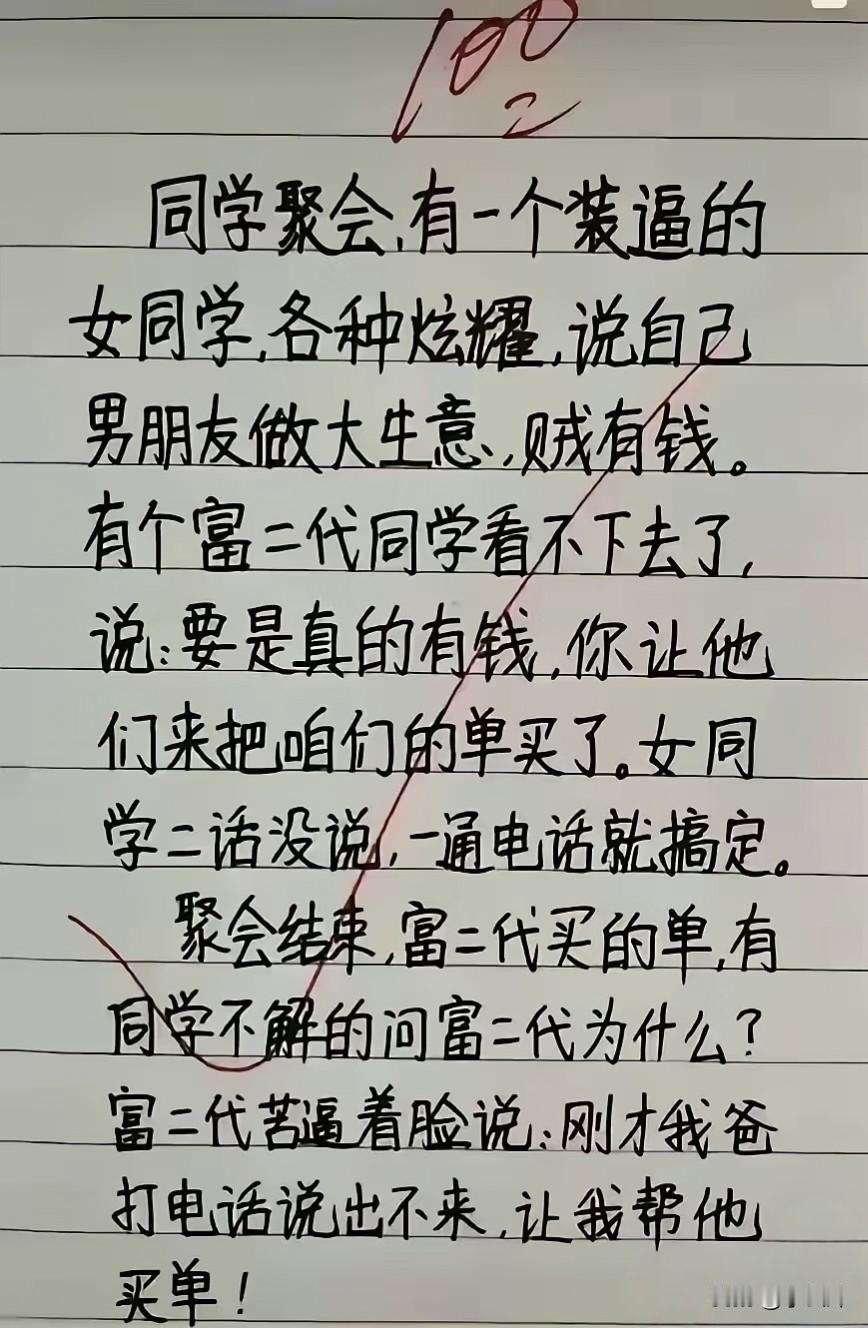 100
同学聚会,有一个装逼的
女同学,各种炫耀,说自己
男朋友做大生意,贼有钱。
有个富二代同学看不下去了,
说:要是真的有钱,你让他
们来把咱们的单买了。女同
学二话没说,一通电话就搞定。
聚会结束,富二代买的单,有
同学不解的问富二代为什么?
富二代苦逼着脸说:刚才我爸
打电话说出不来,让我帮他
买单!